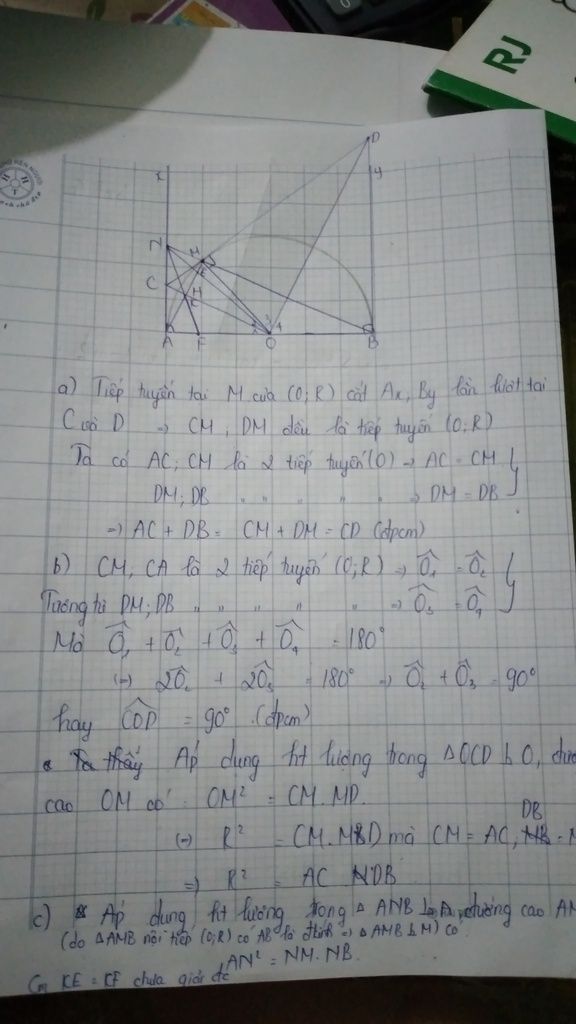 RJ
D
x
y
N
M
C
H
A
F
O
B
a) Tiếp tuyến tại M của (O;R) cắt Ax, By lần lượt tại
C và D ⇒ CM, DM đều là tiếp tuyến (O;R)
Ta có AC; CM là 2 tiếp tuyến (O) ⇒ AC = CM
DM; DB " " " " " ⇒ DM = DB
⇒ AC + DB = CM + DM = CD (đpcm)
b) CM, CA là 2 tiếp tuyến (O;R) ⇒ Ô₁ = Ô₂
Tương tự DM; DB " " " " " ⇒ Ô₃ = Ô₄
Mà Ô₁ + Ô₂ + Ô₃ + Ô₄ = 180°
(⇒) 2Ô₂ + 2Ô₃ = 180° ⇒ Ô₂ + Ô₃ = 90°
hay CÔD = 90° (đpcm)
Ta thấy Áp dụng ht lượng trong △OCD ⊥ O, đườ
cao OM có: OM² = CM.MD.
(⇒) R² = CM.MD mà CM = AC, DB
⇒ R² = AC DB
c) Áp dụng ht lượng trong △ANB ⊥ A, đường cao AM
(do △AMB nội tiếp (O;R) có AB là đkính ⇒ △AMB ⊥ M) có
AN² = NM.NB.
Cm KE = KF chưa giải đc